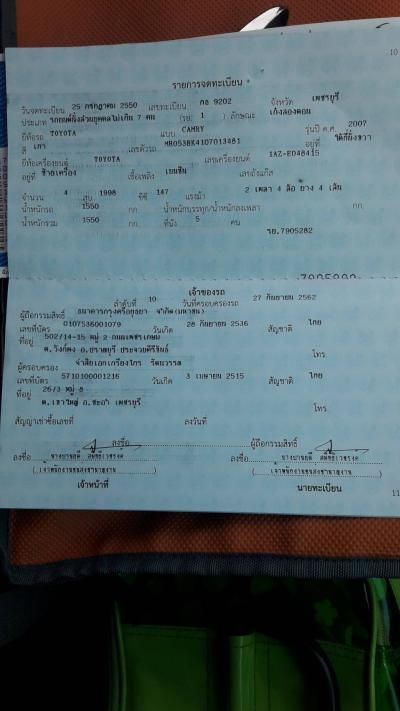 10
รายการจดทะเบียน
วันจดทะเบียน 25 กรกฎาคม 2550 เลขทะเบียน กง 9202 จังหวัด เพชรบุรี
ประเภท รถยนต์นั่งส่วนบุคคลไม่เกิน 7 คน (รย. 1 ) ลักษณะ เก๋งสองตอน
ยี่ห้อรถ TOYOTA แบบ CAMRY รุ่นปี ค.ศ. 2007
สี เทา เลขตัวรถ MR053BK4107013481 อยู่ที่
ยี่ห้อเครื่องยนต์ TOYOTA เลขเครื่องยนต์ 1AZ-E048415
อยู่ที่ ซ้ายเครื่อง เชื้อเพลิง เบนซิน เลขถังแก๊ส
จำนวน 4 สูบ 1998 ซีซี 147 แรงม้า 2 เพลา 4 ล้อ ยาง 4 เส้น
น้ำหนักรถ 1550 กก น้ำหนักบรรทุก/น้ำหนักลงเพลา กก
น้ำหนักรวม 1550 กก ที่นั่ง 5 คน
รย.7905282
เจ้าของรถ
ลำดับที่ 10 วันที่ครอบครองรถ 27 กันยายน 2562
ผู้ถือกรรมสิทธิ์ ธนาคารกรุงศรีอยุธยา จำกัด(มหาชน)
เลขที่บัตร 0107536001079 วันเกิด 28 กันยายน 2536 สัญชาติ ไทย
ที่อยู่ 502/14-15 หมู่ 2 ถนนเพชรเกษม
ต.วังก์พง อ.ปราณบุรี ประจวบคีรีขันธ์ โทร
ผู้ครอบครอง จ่าสิบเอกเกรียงไกร
เลขที่บัตร 5710100001216 วันเกิด 3 เมษายน 2515 สัญชาติ ไทย
ที่อยู่ 26/3 หมู่ 8
ต.เขาใหญ่ อ.ชะอำ เพชรบุรี โทร
สัญญาเช่าซื้อเลขที่ ลงวันที่
ลงชื่อ ผู้ถือกรรมสิทธิ์
ลงชื่อ ลงชื่อ
เจ้าหน้าที่ นายทะเบียน
11